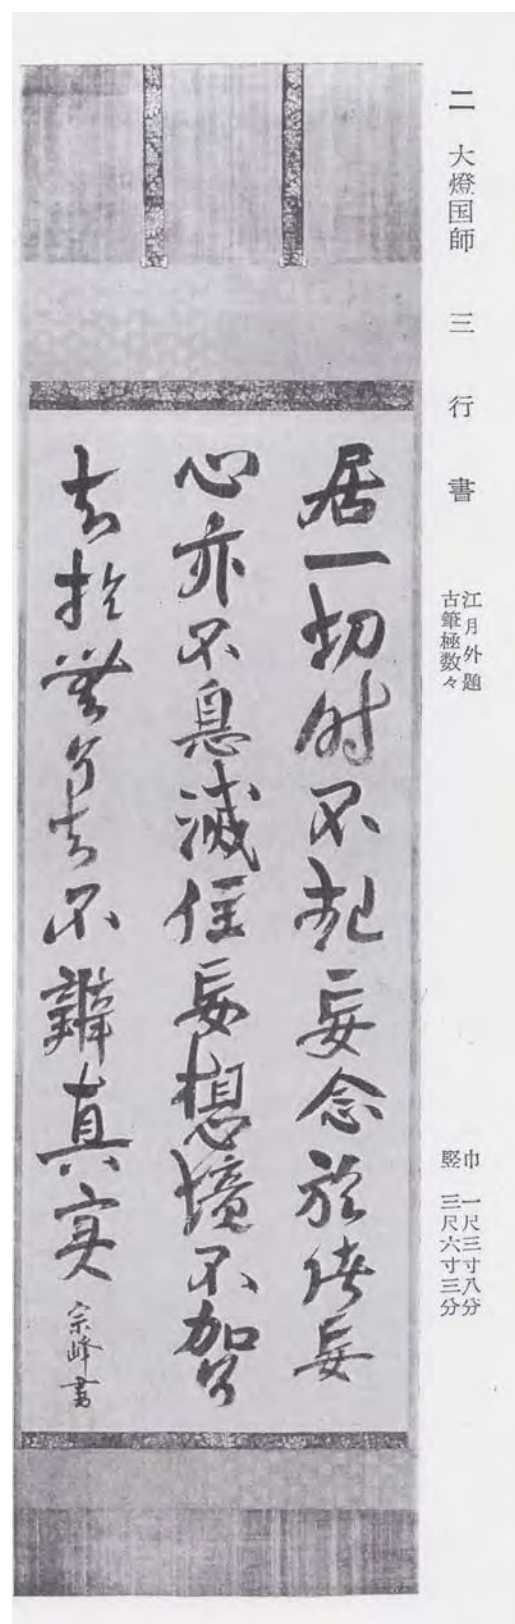 二 大燈国師 三行書
江月外題
古筆極数々
巾 一尺三寸八分
竪 三尺六寸三分
居一切時不起妄念於諸妄
心亦不息滅住妄想境不加了
知於無了知不辨真実
宗峰書